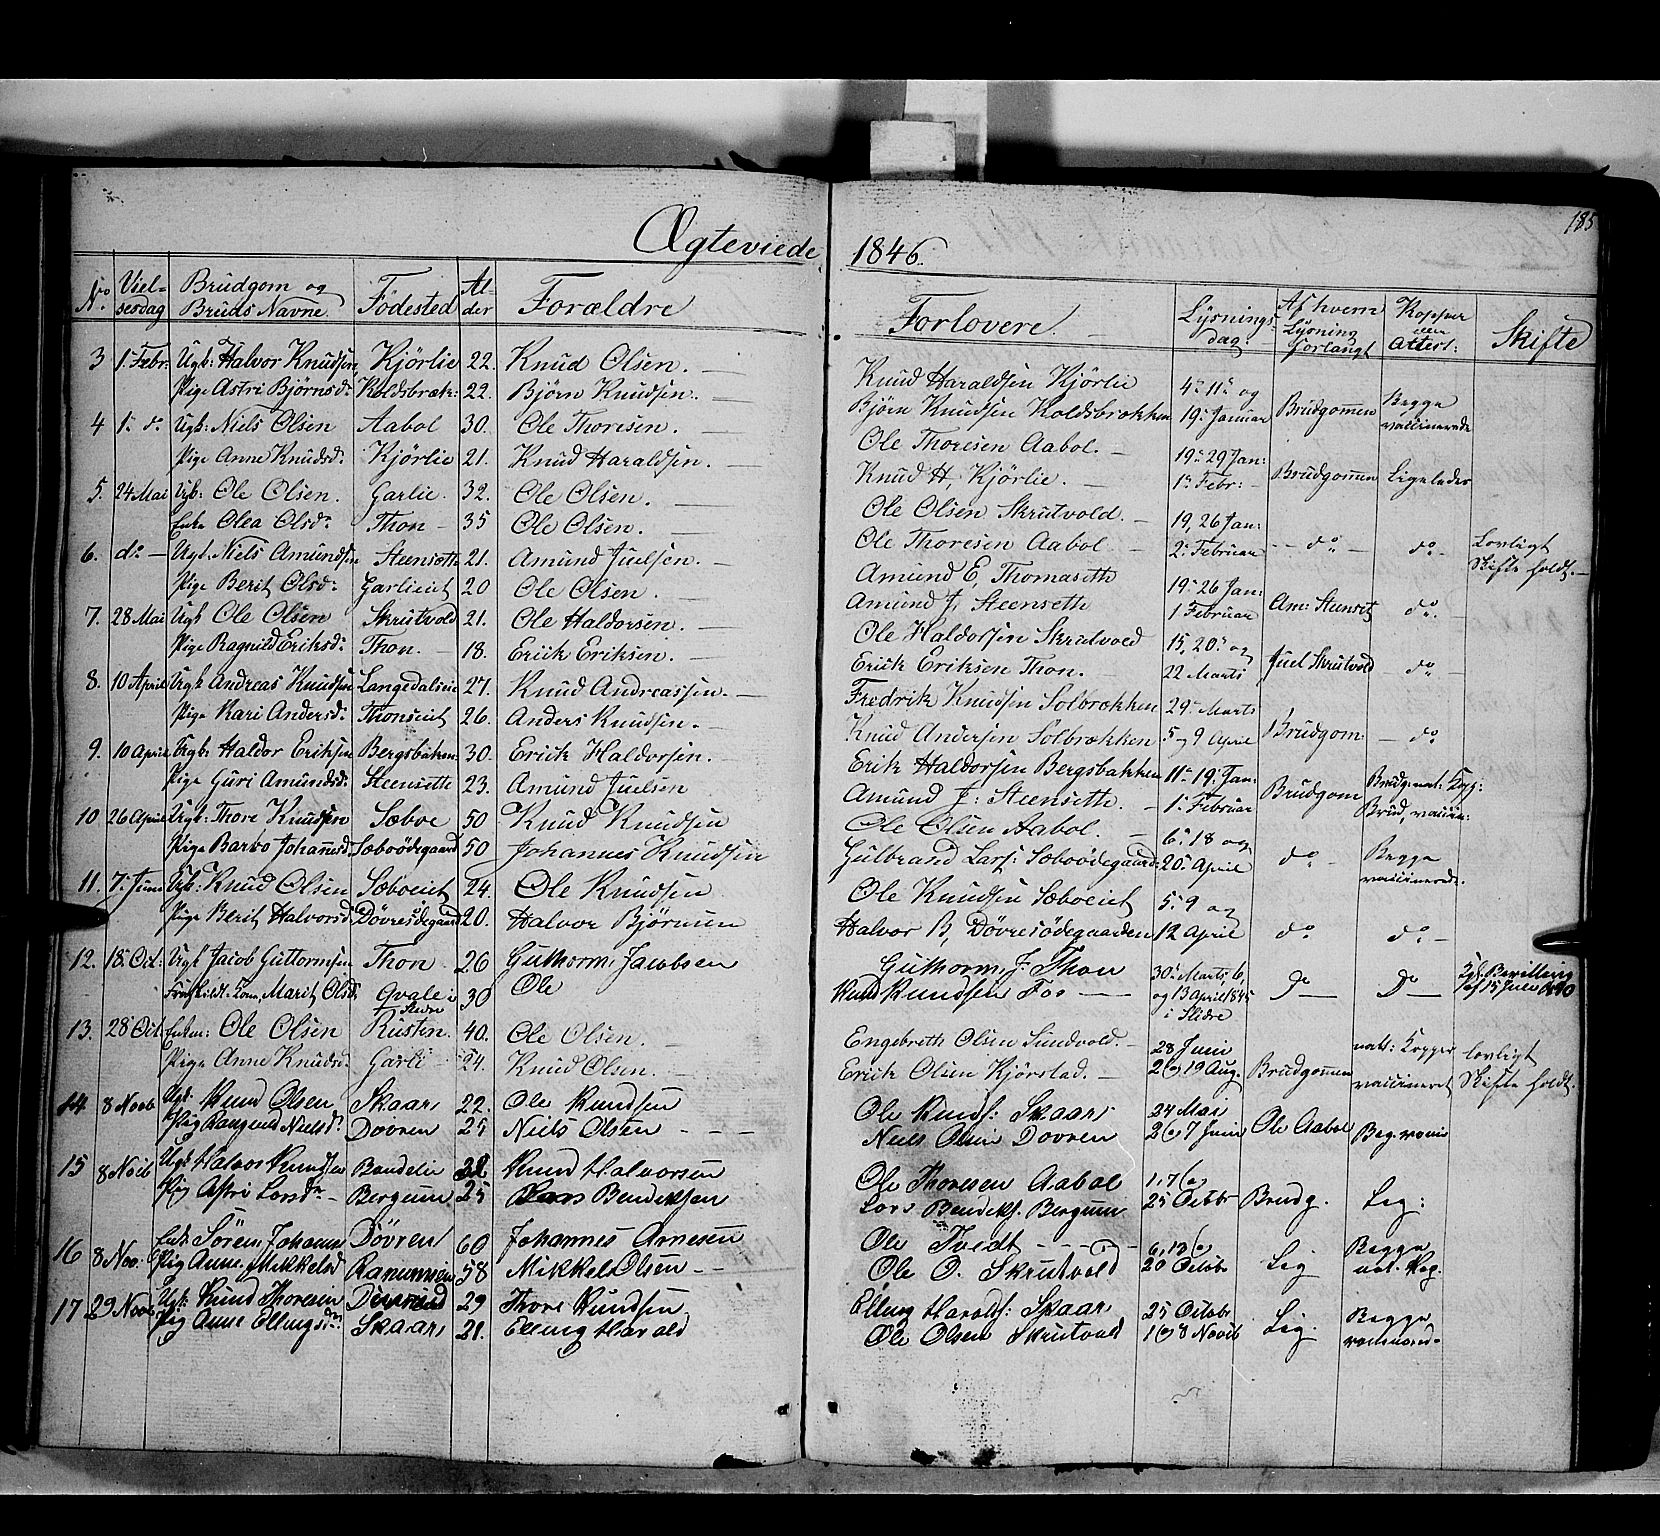 185
Ægteviede 1846.
No. Vielsesdag Brudgom og Bruds Navne. Födested Alder Forældre Forlovere. Lysningsdag Af hvem Lysning forlangt Kopper eller Attest: Skifte
3 1. Febr: Ugk: Halvor Knudsen, Kjörlie 22. Knud Olsen. Knud Haraldsen Kjörlie 4de 11te og
Pige Astri Björnsdr Koldsbræk: 22. Björn Knudsen. Björn Knudsen Koldsbrækken 19. Januar Brudgommen Begge vaccinerede
4 1. do Ugk: Niels Olsen Aabol 30. Ole Thoresen. Ole Thoresen Aabol. 19. 29 Jan:
Pige Anne Knudsdr Kjörlie 21. Knud Haraldsen. Knud H. Kjörlie. 1. Febr: Brudgommen Ligeledes
5. 24 Mai Ugk: Ole Olsen. Garlie. 32. Ole Olsen. Ole Olsen Skrutvold. 19, 26 Jan:
Enke Olea Olsdr Thon 35 Ole Olsen. Ole Thoresen Aabol 2. Februar do do Lovligt Skifte holdt.
6. do Ugk: Niels Amundsen Steensæth 21. Amund Juelsen. Amund E. Thomasæth 19. 26 Jan:
Pige Berit Olsdr Garlieiet 20 Ole Olsen. Amund J. Steensæth 1 Februar Am: Steensæt do
7. 28 Mai Ugk Ole Olsen Skrutvold 21. Ole Haldorsen. Ole Haldorsen Skrutvold 15, 20. og
Pige Ragnild Eriksdr Thon. 18. Erick Eriksen. Erick Eriksen Thon. 22 Marts Juel Skrutvold do
8. 10 April Ugk Andreas Knudsen Langedalseie 27. Knud Andreassen. Fredrik Knudsen Solbrækken 29. Marts
Pige Kari Andersdr Thonseiet 26. Anders Knudsen. Knud Andersen Solbrækken 5 og 9 April Brudgom: do
9. 10 April Ugk: Haldor Eriksen Bergsbakken 30. Erick Haldorsen. Erik Haldorsen Bergsbakken 11. 19. Jan: Brudg: nat: Kopp:
Pige Guri Amundsdr Steensæth 23. Amund Juelsen Amund J: Steensæth. 1. Februar Brudgom Brud, vaccin:
10 26 April Ugk: Thore Knudsen Sæboe 50 Knud Knudsen Ole Olsen Aabol. 6. 18 og
Pige Barbo Johannesd. Sæboödegaard 50 Johannes Knudsen Gulbrand Lars: Sæboödegaard 20. April do Begge vaccinerede.
11. 7. Juni Ugk: Knud Olsen Sæboeiet 24. Ole Knudsen Ole Knudsen Sæboeiet 5. 9 og
Pige Berit Halvorsd Dövresödegaard 20. Halvor Björnsen Halvor B. Dövresödegaarden 12 April do do
12. 18. Oct: Ugk Jacob Guttormsen Thon 26 Guthorm Jacobsen Guthorm J. Thon 30. Marts, 6,
Marit Olsd. Qvale i Slidre 30 Ole Knud Knudsen Fos og 13 April 1845 i Slidre Do Do Kgl: Bevilling af 15 Juli
13. 28 Oct. Enkm: Ole Olsen Rusten. 40. Ole Olsen. Engebreth Olsen Sundvold. 28 Juni natl: Kopper Lovligt
Pige Anne Knudsd. Garli 24. Knud Olsen. Erick Olsen Kjörstad. 2 (og) 19 Aug. Brudgommen vaccineret Skifte holdt.
14 8 Novb Ugk: Knud Olsen Skaars 22. Ole Knudsen Ole Knuds: Skaars 24 Mai
Pig Rangnid Nielsdr Dovren 25 Niels Olsen Niels Olsen Dovren 2 (og) 7 Juni Ole Aabol Beg. vaccin
15 8 Novb Ugk Halvor Knudsen Bendelie Knud Halvorsen Ole Thoresen Aabol 1, 7 (og)
Pig Astri Larsdr Bergum 25 Lars Bendiksen Lars Bendiks. Bergum 25 Octobr Brudg. Lig:
16 8 Nov. Enk. Sören Johannes Dövren 60 Johannes Arnesen Ole Tvedt 6, 13 (og) Begge
Pig Anne Mikkelsd 58 Mikkel Olsen Ole O. Skrutvold 20 Octobr Lig nat. Kop.
17 29 Novb Ugk: Knud Thoresen 29 Thore Knudsen Elling Haralds: Skaars 25 Octobr Begge
Pig Anne Ellingsdr Skaars 21. Elling Harald Ole Olsen Skrutvold 1 (og) 8 Novb Lig